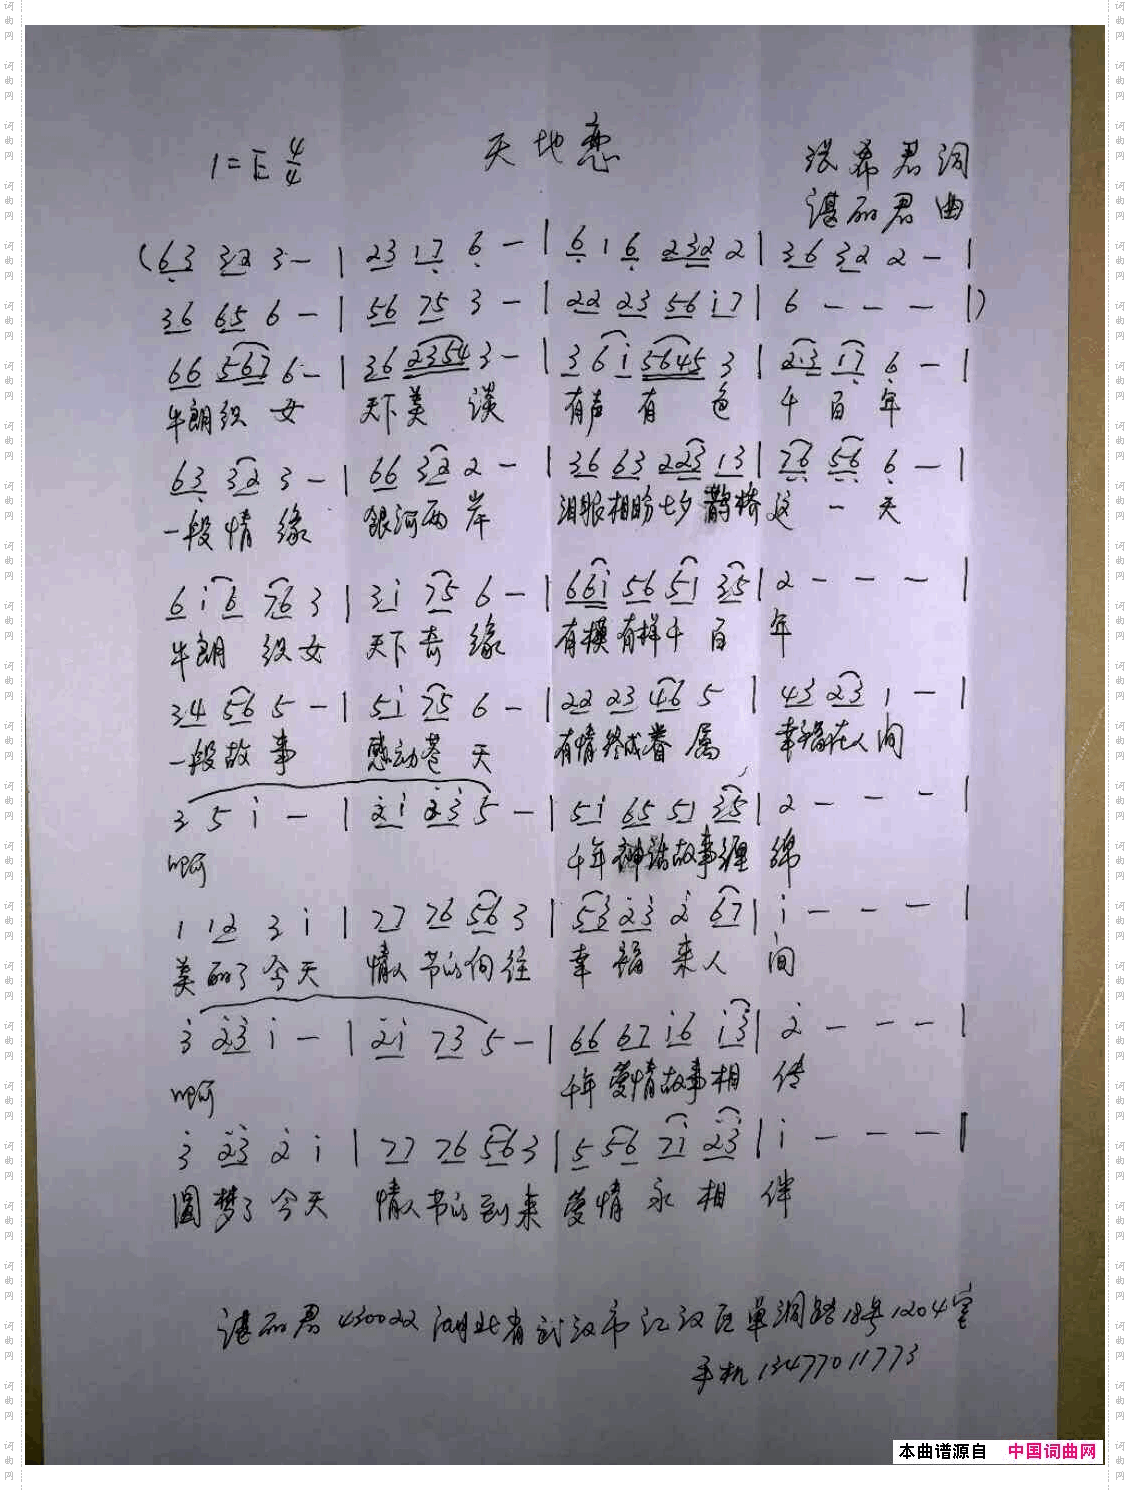 天地恋
1=E 4/4
张希君词
谌丽君曲
(63 323 - | 23 17 6 - | 6 1 6 232 2 | 36 32 2 - |
36 65 6 - | 56 75 3 - | 22 23 56 i7 | 6 - - - |)
66 567 6 - | 36 2354 3 - | 3 6 i 5645 3 | 2·3 17 6 - |
牛朗织女 天下美谈 有声有色 千百年
63 32 3 - | 66 32 2 - | 36 63 223 13 | 76 56 6 - |
一段情缘 銀河两岸 泪眼相盼七夕鹊桥这一天
6 i 6 76 3 | 3i 75 6 - | 66i 56 51 35 | 2 - - - |
牛朗织女 天下奇缘 有模有样千百年
34 56 5 - | 5i 75 6 - | 22 23 46 5 | 43 23 1 - |
一段故事 感动苍天 有情终成眷属 幸福在人间
3 5 i - | 2i 23 5 - | 5i 65 51 35 | 2 - - - |
啊 千年神话故事缠绵
1 12 3 i | 77 76 56 3 | 53 23 2 67 | i - - - |
美丽了今天 情人节的向往 幸福来人间
3 23 i - | 2i 73 5 - | 66 67 i6 i3 | 2 - - - |
啊 千年爱情故事相传
3 23 2 i | 77 76 56 3 | 5 56 7i 23 | i - - - ||
圆梦了今天 情人节的到来 爱情永相伴
谌丽君 430022 湖北省武汉市江汉区单洞路18号1204室
手机 13477011773
本曲谱源自 中国词曲网